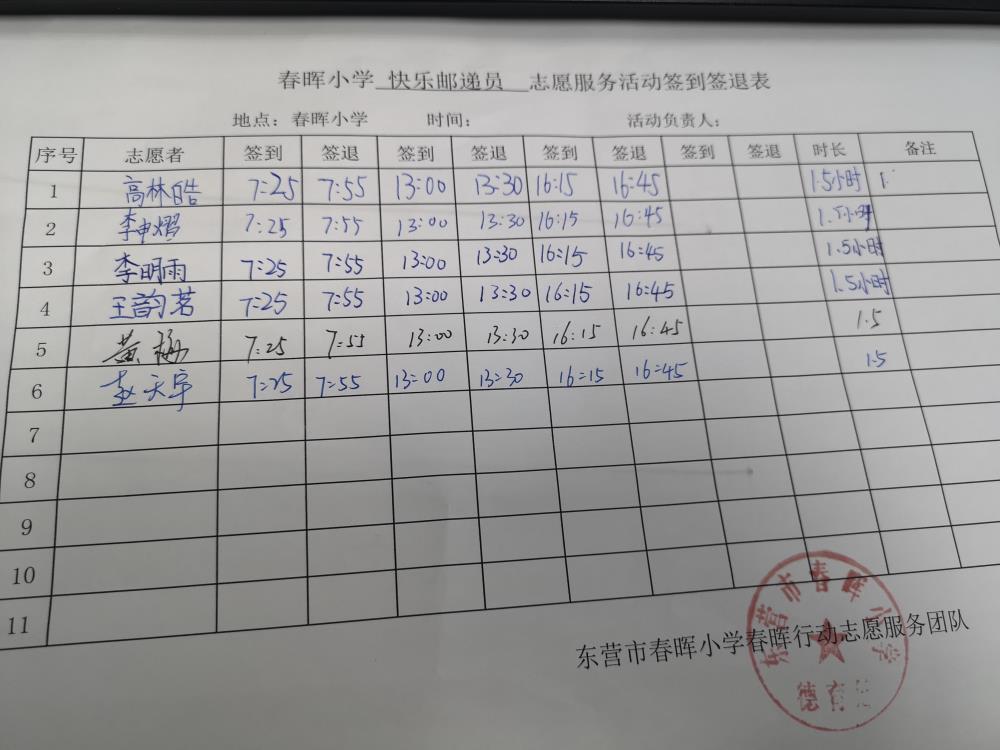 春晖小学 快乐邮递员 志愿服务活动签到签退表
地点：春晖小学 时间： 活动负责人：
序号 志愿者 签到 签退 签到 签退 签到 签退 签到 签退 时长 备注
1 高林皓 7:25 7:55 13:00 13:30 16:15 16:45 1.5小时 1.
2 李申熠 7:25 7:55 13:00 13:30 16:15 16:45 1.5小时
3 李明雨 7:25 7:55 13:00 13:30 16:15 16:45 1.5小时
4 王韵茗 7:25 7:55 13:00 13:30 16:15 16:45 1.5小时
5 黄杨 7:25 7:55 13:00 13:30 16:15 16:45 1.5
6 赵天宇 7:25 7:55 13:00 13:30 16:15 16:45 1.5
7
8
9
10
11
东营市春晖小学春晖行动志愿服务团队
东营市春晖小学
德育处